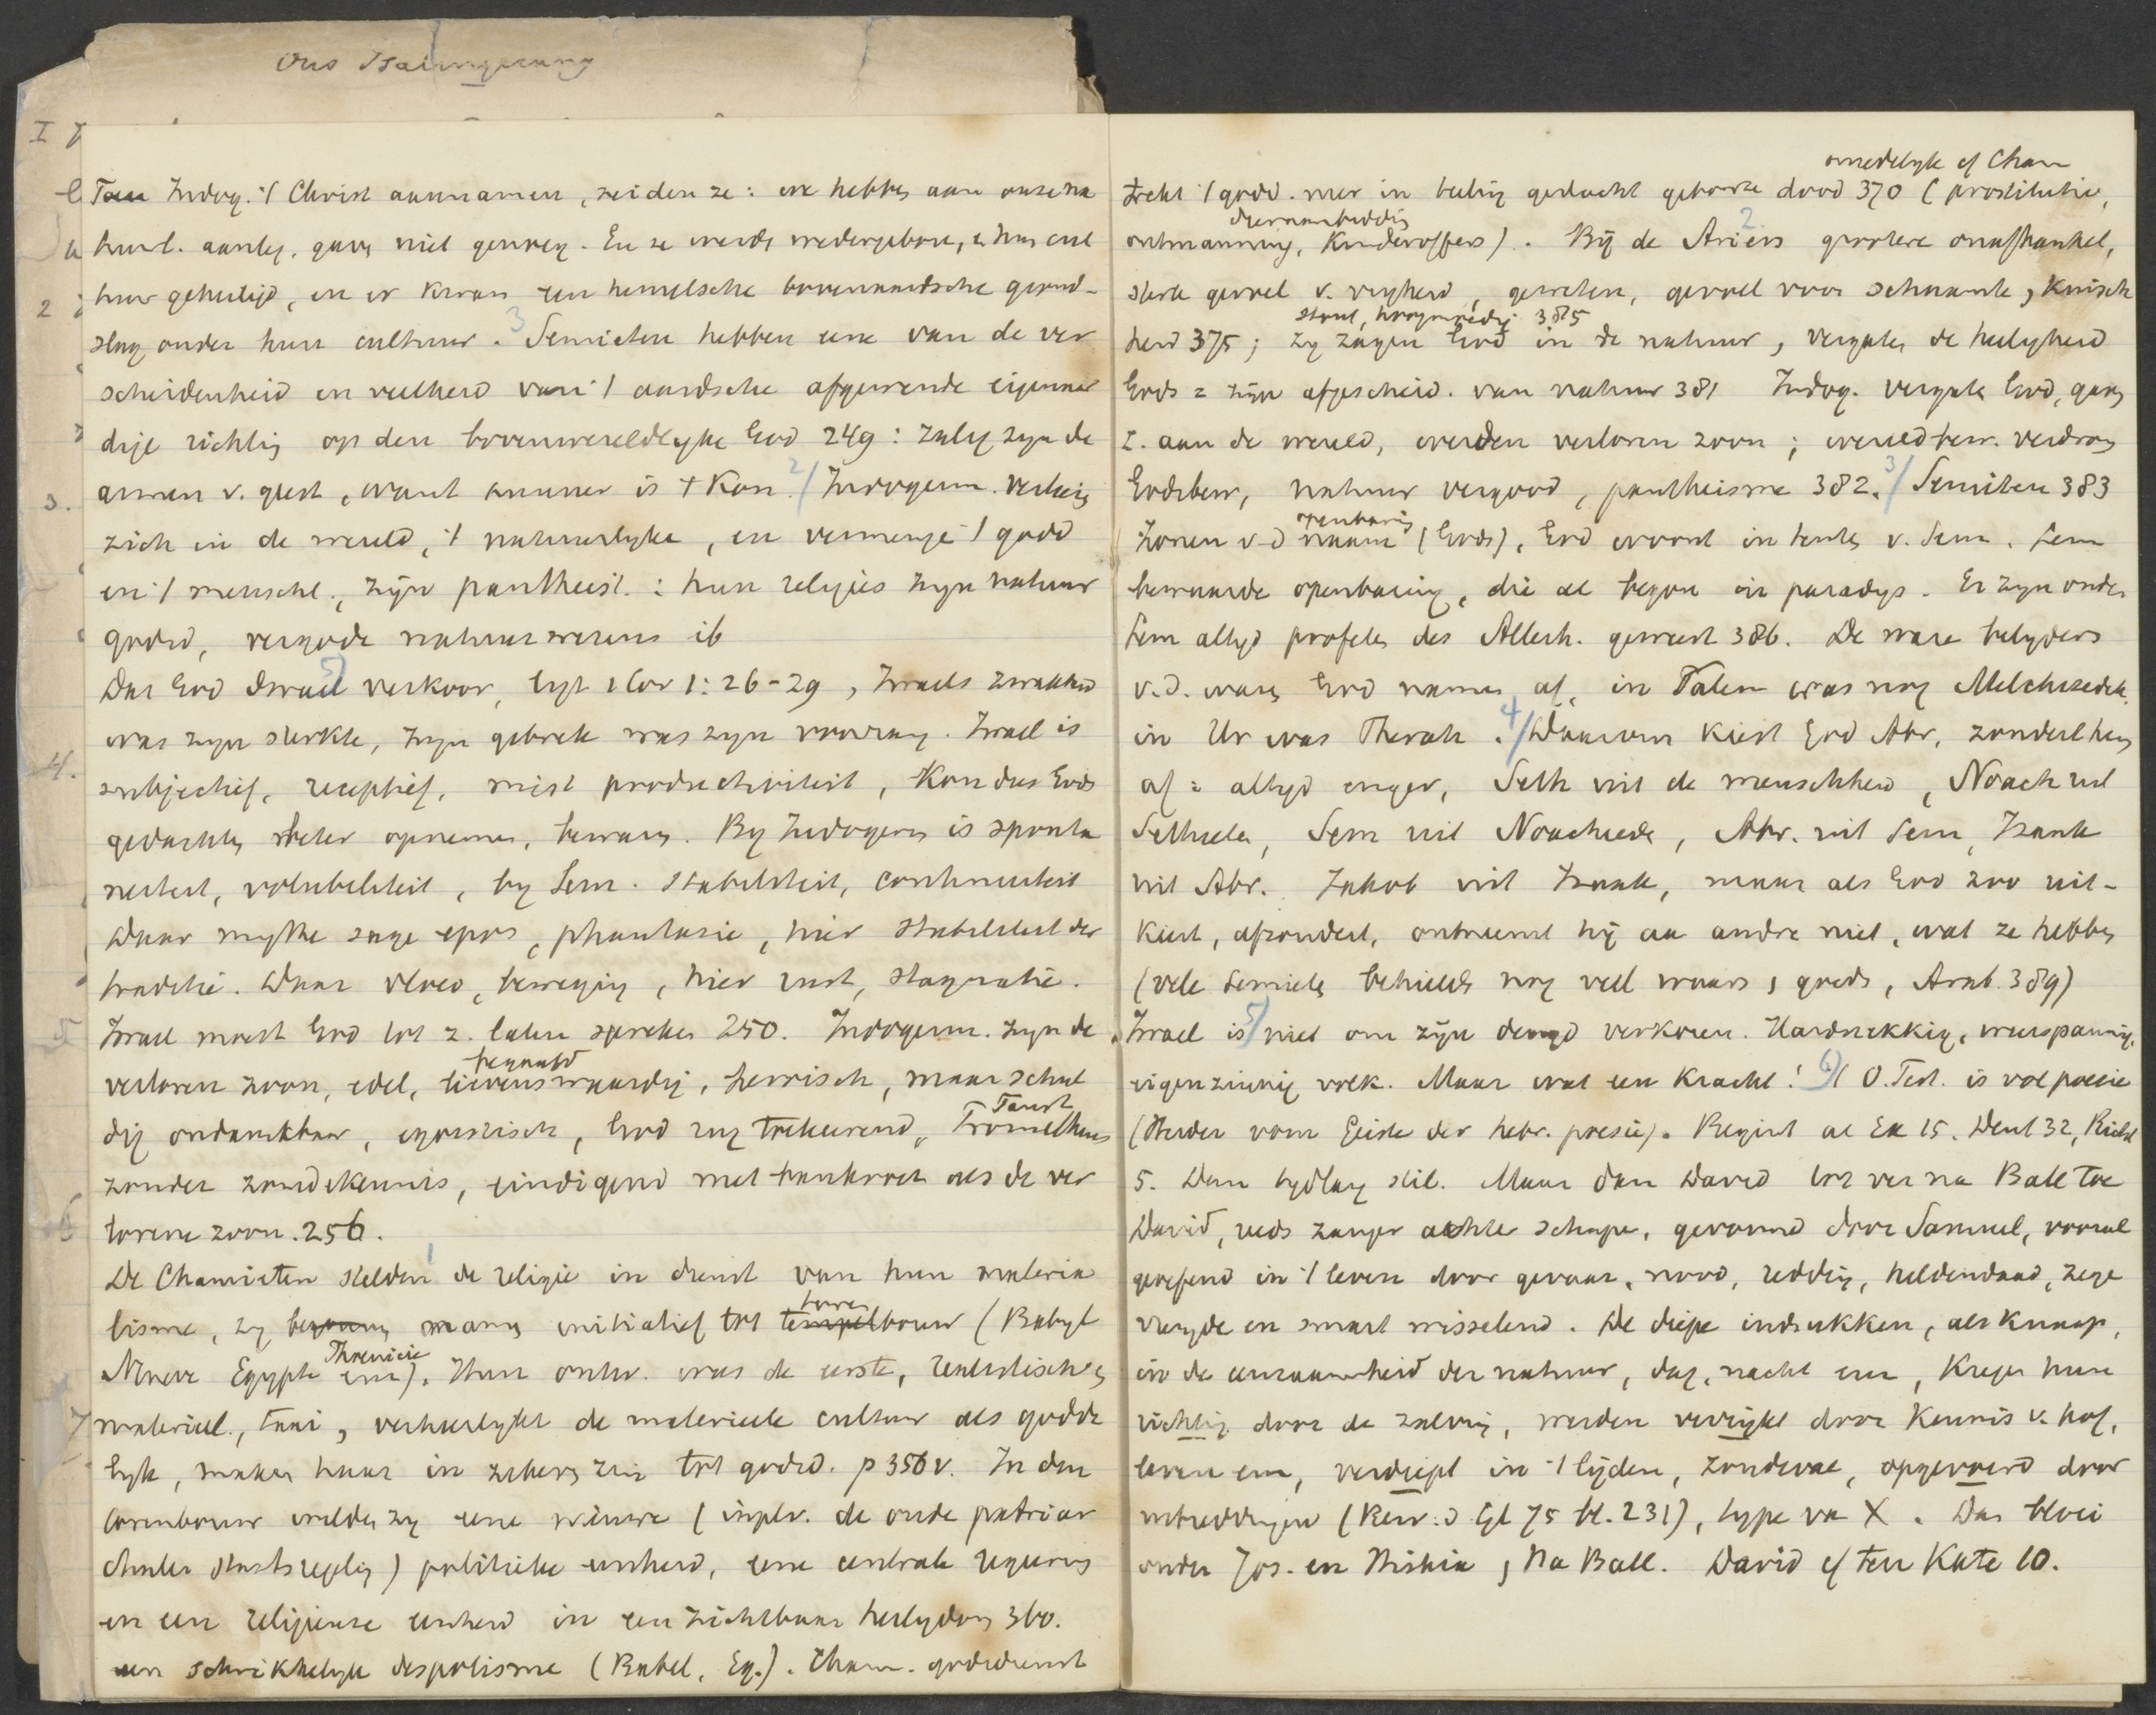 Toen Indog. 't Christ aannamen, zeiden ze: we hebben aan onze na
tuurl. aanleg, gaven niet genoeg. En ze werden wedergeboren, en hun cul
tuur geheiligd, en er kwam een hemelsche bovenaardsche grond-
slag onder hun cultuur. 3 Semieten hebben eene van de ver
scheidenheid en veelheid van 't aardsche afgewende eigenaar
dige richting op den bovenwereldlyke God 249: zalig zyn de
armen v. geest, want armer is + Kon. 2/ Indogerm. verliezen
zich in de wereld, 't natuurlyke, en vermenge 't godd
en 't menschl., zijn pantheist.: hun religies zyn natuur
godsd, vergode natuurwezens ib
Dat God Israel 5) verkoor, ligt 1 Cor 1:26-29, Israels zwakheid
was zyn sterkte, zyn gebrek was zyn voorrang. Israel is
subjectief, receptief, mist productiviteit, kon dus Gods
gedachten beter opnemen, bewaren. By Indogerm is sponta
neiteit, volubiliteit, by Sem. stabiliteit, continuiteit
Daar mythe sage epos, phantasie, hier stabiliteit der
traditie. Daar vloed, beweging, hier rust, stagnatie.
Israel moest God tot z. laten spreken 250. Indogerm. zyn de
begaafd
verloren zoon, edel, lievenswaardig, heroisch, maar schul
Faust
dig ondankbaar, egoistisch, God rug toekeerend, Prometheus
zonder zondekennis, eindigend met bankroet als de ver
lorene zoon. 256.
De Chamieten stelden 1 de religie in dienst van hun materia
toren
lisme, zy begonnen namen initiatief tot tempelbouw (Babyl
Phenicie
Nineve Egypte enz). Hun ontw. was de eerste, realistisch,
materieel, taai, verheerlykt de materieele cultuur als godde
lyk, maken haar in zekeren zin tot godsd. p 356v. In den
torenbouw wilden zy eene nieuwe (inplv. de oude patriar
chale staatsregeling) politieke eenheid, eene centrale regeering
en een religieuse eenheid in een zichtbaar heiligdom 360.
een schrikkelyk despotisme (Babel, Eg.). Cham. godsdienst
onzedelyk of Cham
trekt 't godd. neer in beeling gedacht geboorte dood 370 (prostitutie,
dierenaanbidding
ontmanning, Kinderoffers). Bij de Ariers 2 grootere onafhankel,
sterk gevoel v. vryheid, geweten, gevoel voor schaamte, kuisch
stout, hoogmoedig 385
heid 375; zy zagen God in de natuur, vergaten de heiligheid
Gods = zijn afgescheid. van natuur 381 Indog. vergaten God, gaven
z. aan de wereld, werden verloren zoon; wereldbew. verdrong
Godsbew, natuur vergood, pantheisme 382. 3/ Semiten 383
openbaring
Zonen v.d naam (Gods), God woont in tenten v. Sem. Sem
bewaarde openbaring, die al begon in paradys. Er zyn onder
Sem altyd profeten des Allerh. geweest 386. De ware belyders
v.d. waren God namen af, in Salem was nog Melchizedek
in Ur was Therah. 4/ Daarom kiest God Abr, zondert hem
af = altyd enger, Seth uit de menschheid, Noach uit
Sethieten, Sem uit Noachieden, Abr. uit Sem, Izaak
uit Abr. Jakob uit Izaak, maar als God zoo uit-
kiest, afzondert, ontneemt hij aan andre niet, wat ze hebben
(vele Semieten behielden nog veel waars, goeds, Arab. 389)
Israel is 5/ niet om zijn deugd verkoren. Hardnekkig, weerspannig,
eigenzinnig volk. Maar wat een Kracht! 6) 't O.Test. is vol poesie
(Herder vom Geiste der hebr. poesie). Begint al Ex 15. Deut 32, Richt
5. Dan tydlang stil. Maar dan David tot ver na Ball. toe
David, reeds zanger achter schapen, gevormd door Samuel, vooral
geoefend in 't leven door gevaar, nood, redding, heldendaad, zege
vreugde en smart wisselend. De diepe indrukken, als knaap,
in de eenzaamheid der natuur, dag, nacht enz, kregen hun
richting door de zalving, werden verrijkt door kennis v. hof,
leven enz, verdiept in 't lijden, zondeval, opgevoerd door
uitreddingen (Bew. d Gl 75 bl. 231), type van X. Dan bloei
onder Jos. en Hiskia, Na Ball. David cf ten Kate 10.